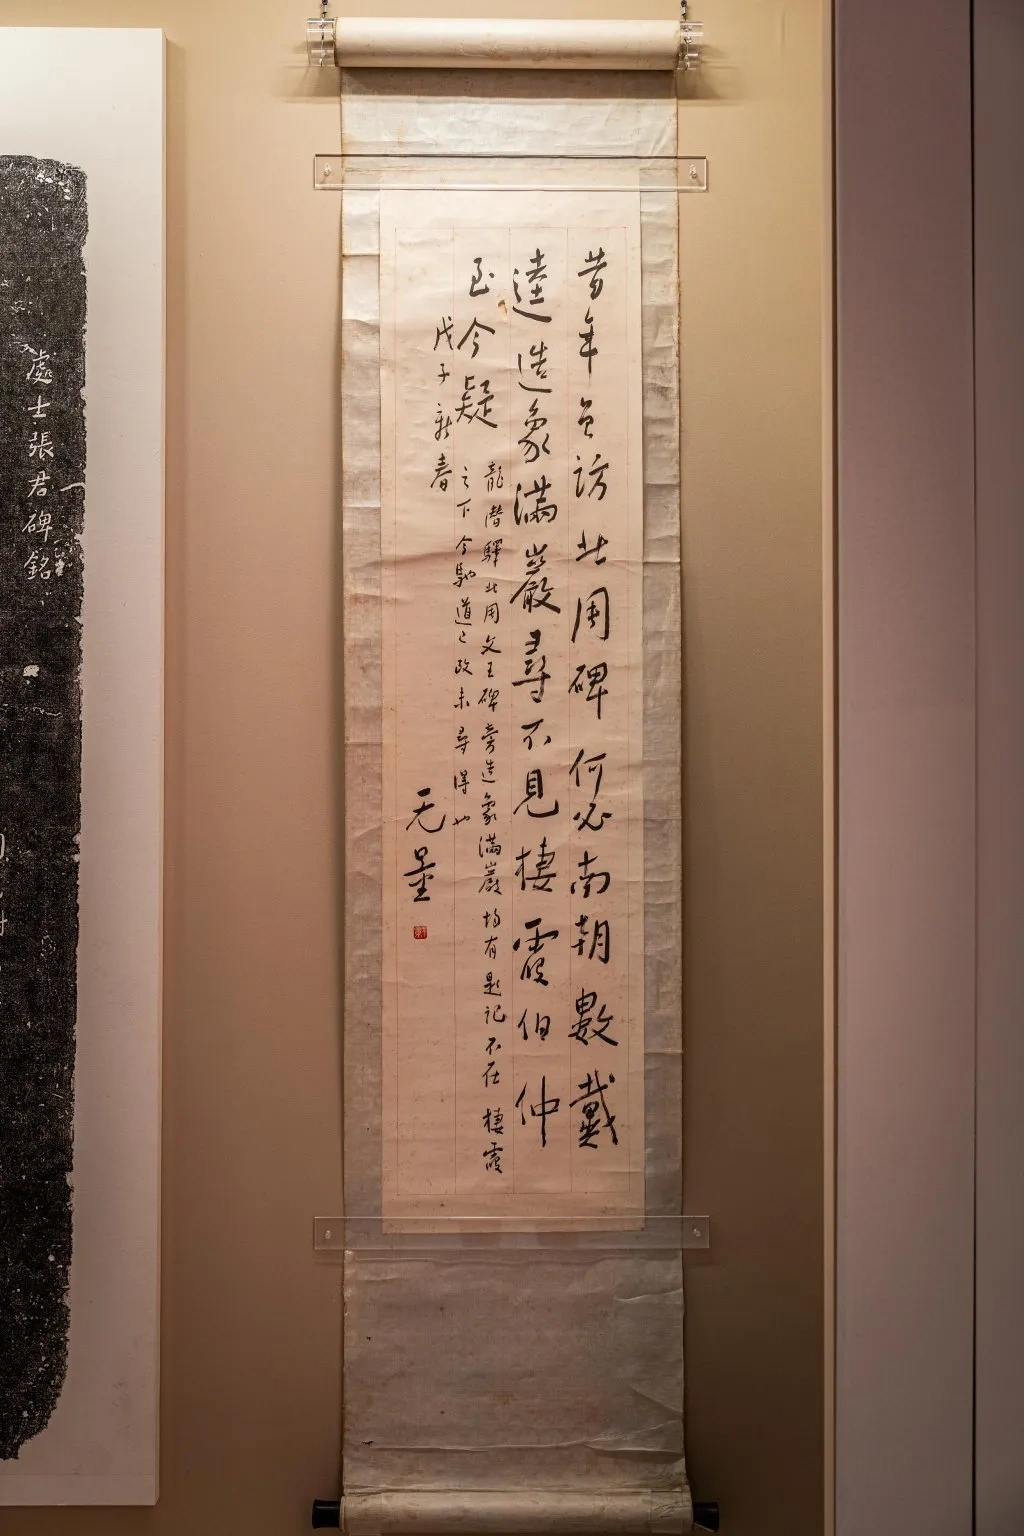 昔年曾訪北周碑何必南朝數戴
逵造象滿巖尋不見棲霞伯仲
至今疑
龍潛驛北周文王碑旁造象滿巖均有題記不在棲霞
之下今馳道已改未尋得也
戊子新春
无量
處士張君碑銘